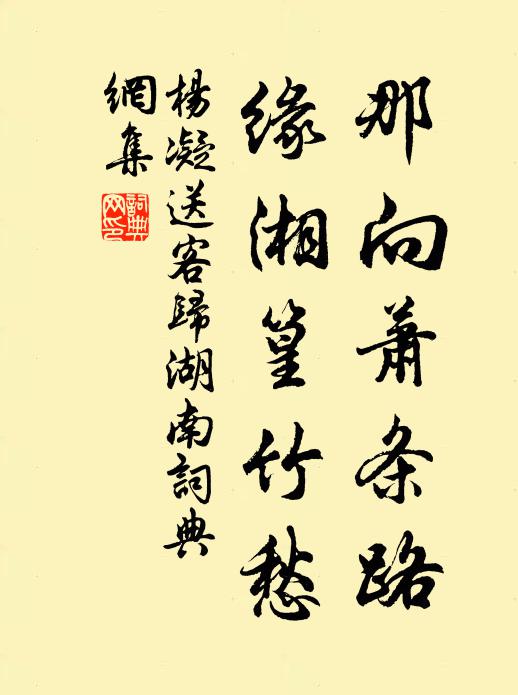 那向萧条路
缘湘篁竹愁
楊凝送客歸湖南詞典
網集
詞典
网印